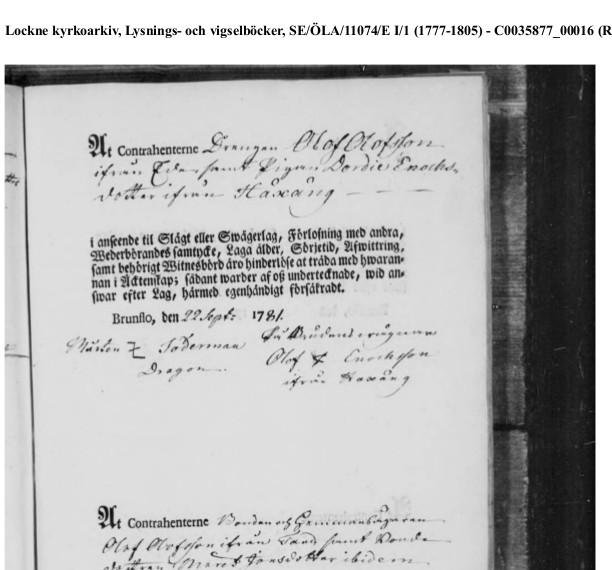 Lockne kyrkoarkiv, Lysnings- och vigselböcker, SE/ÖLA/11074/E I/1 (1777-1805) - C0035877_00016 (R
At Contrahenterne Drengen Olof Olofsson
ifrån Ede samt Pigan Dordie Enochs-
dotter ifrån Håxäng
i anseende til Slägt eller Swägerlag, Förlofning med andra,
Wederbörandes samtycke, Laga ålder, Sörjetid, Afwittring,
samt behörigt Witnesbörd äro hinderlöse at träda med hwaran-
nan i Äcktenskap; sådant warder af oß undertecknade, wid an-
swar efter Lag, härmed egenhändigt försäkradt.
Brunflo, den 22 Sept: 1781.
Mårten Söderman
Dragon
På Brudens wägnar
Olof Enochsson
ifrån Haxäng
At Contrahenterne Bonden och Hemmansägaren
Olof Olofsson ifrån Tand samt Bonde
dottren Meret Jonsdotter ibidem